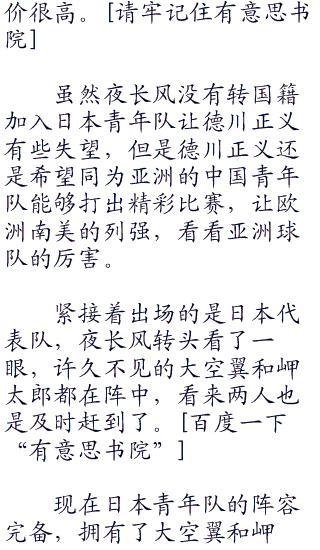 价很高。[请牢记住有意思书
院]
虽然夜长风没有转国籍
加入日本青年队让德川正义
有些失望，但是德川正义还
是希望同为亚洲的中国青年
队能够打出精彩比赛，让欧
洲南美的列强，看看亚洲球
队的厉害。
紧接着出场的是日本代
表队，夜长风转头看了一
眼，许久不见的大空翼和岬
太郎都在阵中，看来两人也
是及时赶到了。[百度一下
“有意思书院”]
现在日本青年队的阵容
完备，拥有了大空翼和岬